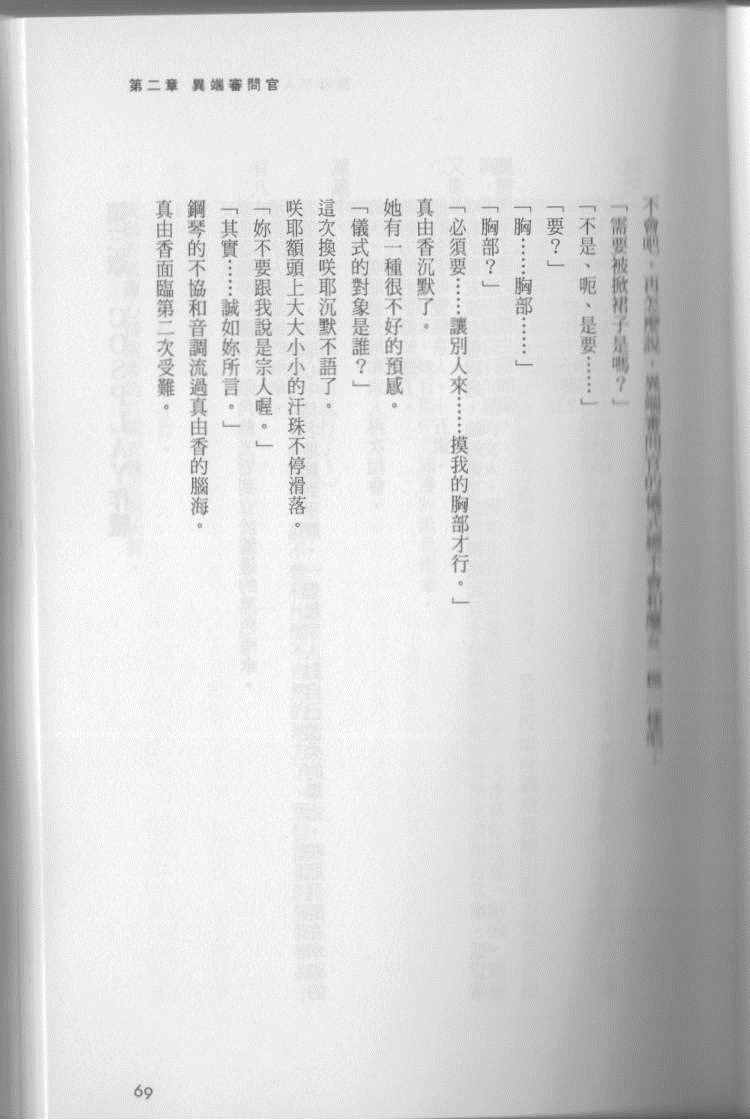 第二章 異端審問官
不會吧，再怎麼說，異端審問官的儀式
「需要被掀裙子是嗎？」
「不是、呃、是要……」
「要？」
「胸……胸部……」
「胸部？」
「必須要……讓別人來……摸我的胸部才行。」
真由香沉默了。
她有一種很不好的預感。
「儀式的對象是誰？」
這次換咲耶沉默不語了。
咲耶額頭上大大小小的汗珠不停滑落。
「妳不要跟我說是宗人喔。」
「其實……誠如妳所言。」
鋼琴的不協和音調流過真由香的腦海。
真由香面臨第二次受難。
69